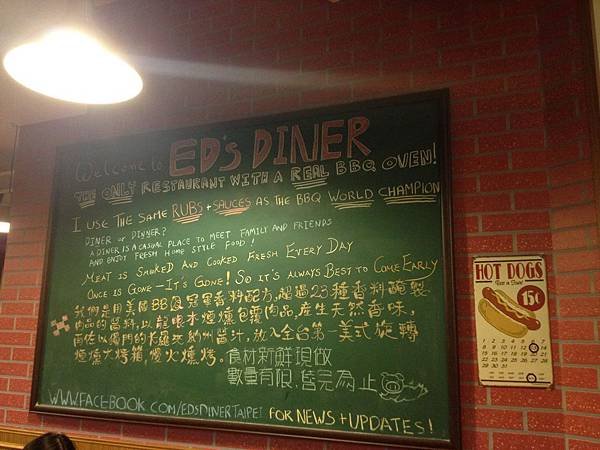 Welcome to ED'S DINER
THE ONLY RESTAURANT WITH A REAL BBQ OVEN!
I USE THE SAME RUBS + SAUCES AS THE BBQ WORLD CHAMPION
DINER or DINNER?
A DINER IS A CASUAL PLACE TO MEET FAMILY AND FRIENDS
AND ENJOY FRESH HOME STYLE FOOD!
MEAT IS SMOKED AND COOKED FRESH EVERY DAY
ONCE IS GONE-IT'S GONE! SO IT'S ALWAYS BEST TO COME EARLY
我們是用美國BBQ冠軍香料配方,超過23種香料醃製
肉品的醬料,以龍眼木煙燻包裹肉品,產生天然香味,
再佐以獨門的卡羅萊納州醬汁,放入全台第一美式旋轉
煙燻大烤箱慢火燻烤。食材新鮮現做
數量有限,售完為止
WWW.FACEBOOK.COM/EDSDINERTAIPEI FOR NEWS + UPDATES!
HOT DOGS
Best in Town!
15¢
1 2 3 4 5 6 7
8 9 10 11 12 13 14
15 16 17 18 19 20 21
22 23 24 25 26 27 28
29 30 31